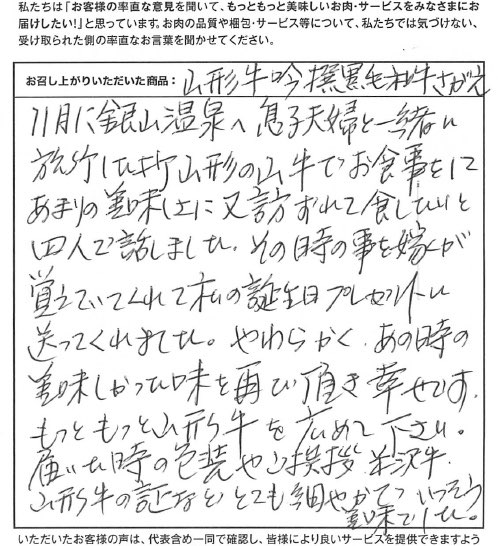 私たちは「お客様の率直な意見を聞いて、もっともっと美味しいお肉・サービスをみなさまにお
届けしたい！」と思っています。お肉の品質や梱包・サービス等について、私たちでは気づけない、
受け取られた側の率直なお言葉を聞かせてください。
お召し上がりいただいた商品： 山形牛吟撰黒毛和牛さがえ
11月に銀山温泉へ息子夫婦と一緒に
旅行した折山形の山牛でお食事をして
あまりの美味しさに又訪ずれて食したいと
四人で話しました。その時の事を嫁くが
覚えていてくれて私の誕生日プレゼントに
送ってくれました。やわらかく、あの時の
美味しかった味を再び頂き幸せです。
もっともっと山形牛を広めて下さい。
届いた時の包装やご挨拶 米沢牛.
山形牛の証などとても細やかでいっそう
美味でした。
いただいたお客様の声は、代表含め一同で確認し、皆様により良いサービスを提供できますよう